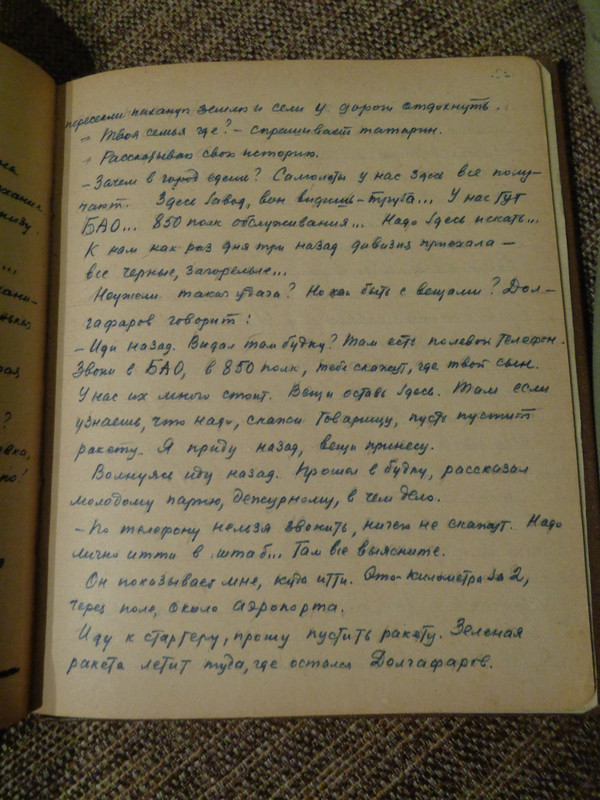 52
пересекли пахануп землю и сели у дороги отдохнуть.
→ Твоя семья где? – спрашивает татарин.
→ Рассказываю свою историю.
– Зачем в город едешь? Самолеты у нас здесь все полу-
чают. Здесь завод, вон видишь – труба... У нас тут
БАО... 850 полк обслуживания... Надо здесь искать...
К нам как раз дня три назад дивизия приехала –
все черные, загорелые...
Неужели такая удача? Но как быть с вещами? Дол-
гафаров говорит:
– Иди назад. Видал там будку? Там есть полевой телефон.
Звони в БАО, в 850 полк, тебе скажут, где твой сын.
У нас их много стоит. Вещи оставь здесь. Там если
узнаешь, что надо, скажи товарищу, пусть пустит
ракету. Я приду назад, вещи принесу.
Волнуясь иду назад. Прошел в будку, рассказал
молодому парню, дежурному, в чем дело.
– По телефону нельзя звонить, ничего не скажут. Надо
лично итти в штаб... Там все выясните.
Он показывает мне, куда итти. Это километра за 2,
через поле, около аэропорта.
Иду к стартеру, прошу пустить ракету. Зеленая
ракета летит туда, где остался Долгафаров.
на
ханик
низу.
...
ани-
нько
рая,
?
вка,
по!